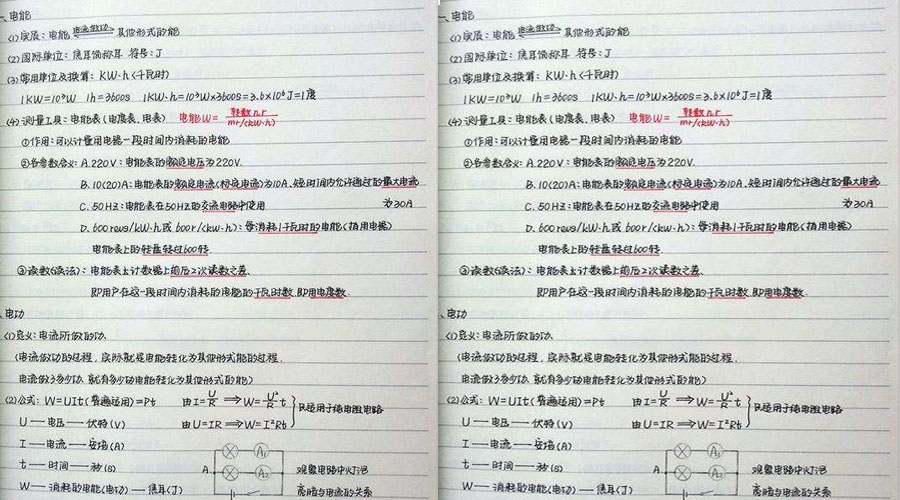 一、电能
(1)实质：电能 电流做功 其他形式的能
(2)国际单位：焦耳简称耳 符号：J
(3)常用单位及换算：KW·h(千瓦时)
1KW=10³W 1h=3600s 1KW·h=10³W×3600s=3.6×10⁶J=1度
(4)测量工具：电能表(电度表、电表) 电能W= 转数n r / mr/(kW·h)
①作用：可以计量用电器一段时间内消耗的电能
②各参数含义：A.220V：电能表的额定电压为220V.
B.10(20)A：电能表的额定电流(标定电流)为10A.短时间内允许通过的最大电流
C.50HZ：电能表在50HZ的交流电路中使用 为30A
D.600revs/kW·h或600r/(kw·h)：每消耗1千瓦时的电能(指用电器)
电能表上的转盘转过600转.
③读数(读法)：电能表上计数器上前后2次读数之差.
即用户在这一段时间内消耗的电能的千瓦时数.即用电度数.
、电功
(1)定义：电流所做的功.
(电流做功的过程，实际就是电能转化为其他形式能的过程.
电流做了多少功.就有多少的电能转化为其他形式的能)
(2)公式：W=UIt(普遍适用)=Pt 由I=U/R ⇒W=U²/R t
只适用于纯电阻电路
U — 电压 — 伏特(V) 由U=IR ⇒W=I²Rt
I — 电流 — 安培(A) A₁
t — 时间 — 秒(s) A. A₂ 观察电路中灯泡
W — 消耗的电能(电功) — 焦耳(J) 亮暗与电流的关系
一、电能
(1)实质：电能 电流做功 其他形式的能
(2)国际单位：焦耳简称耳 符号：J
(3)常用单位及换算：KW·h(千瓦时)
1KW=10³W 1h=3600s 1KW·h=10³W×3600s=3.6×10⁶J=1度
(4)测量工具：电能表(电度表、电表) 电能W= 转数n r / mr/(kW·h)
①作用：可以计量用电器一段时间内消耗的电能
②各参数含义：A.220V：电能表的额定电压为220V.
B.10(20)A：电能表的额定电流(标定电流)为10A.短时间内允许通过的最大电流
C.50HZ：电能表在50HZ的交流电路中使用 为30A
D.600revs/kW·h或600r/(kw·h)：每消耗1千瓦时的电能(指用电器)
电能表上的转盘转过600转.
③读数(读法)：电能表上计数器上前后2次读数之差.
即用户在这一段时间内消耗的电能的千瓦时数.即用电度数.
、电功
(1)定义：电流所做的功.
(电流做功的过程，实际就是电能转化为其他形式能的过程.
电流做了多少功.就有多少的电能转化为其他形式的能)
(2)公式：W=UIt(普遍适用)=Pt 由I=U/R ⇒W=U²/R t
只适用于纯电阻电路
U — 电压 — 伏特(V) 由U=IR ⇒W=I²Rt
I — 电流 — 安培(A) A₁
t — 时间 — 秒(s) A. A₂ 观察电路中灯泡
W — 消耗的电能(电功) — 焦耳(J) 亮暗与电流的关系